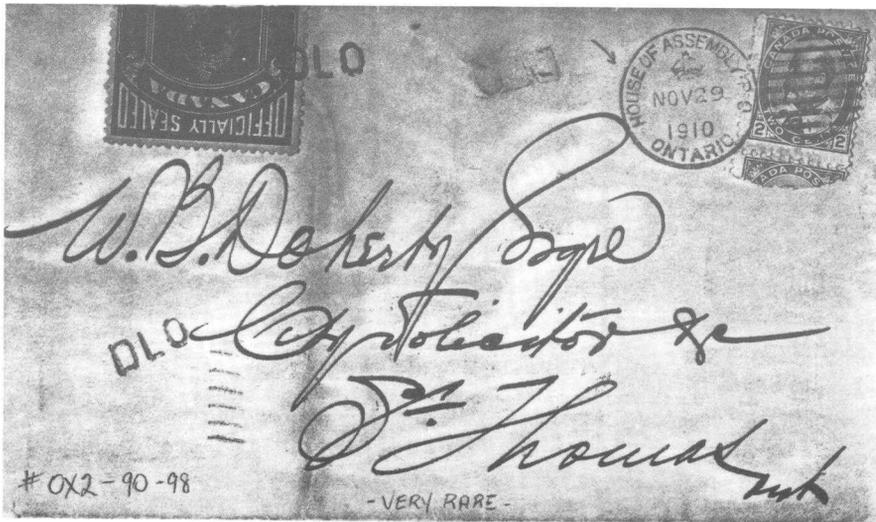 OFFICIALLY SEALED
CANADA
DLO
HOUSE OF ASSEMBLY P.O.
NOV 29
1910
ONTARIO
CANADA POSTAGE
TWO CENTS
2 2
ADA POS
W. B. Doherty Esqre
City Solicitor &c
DLO
St. Thomas
Ont
# OX2-90-98
- VERY RARE -